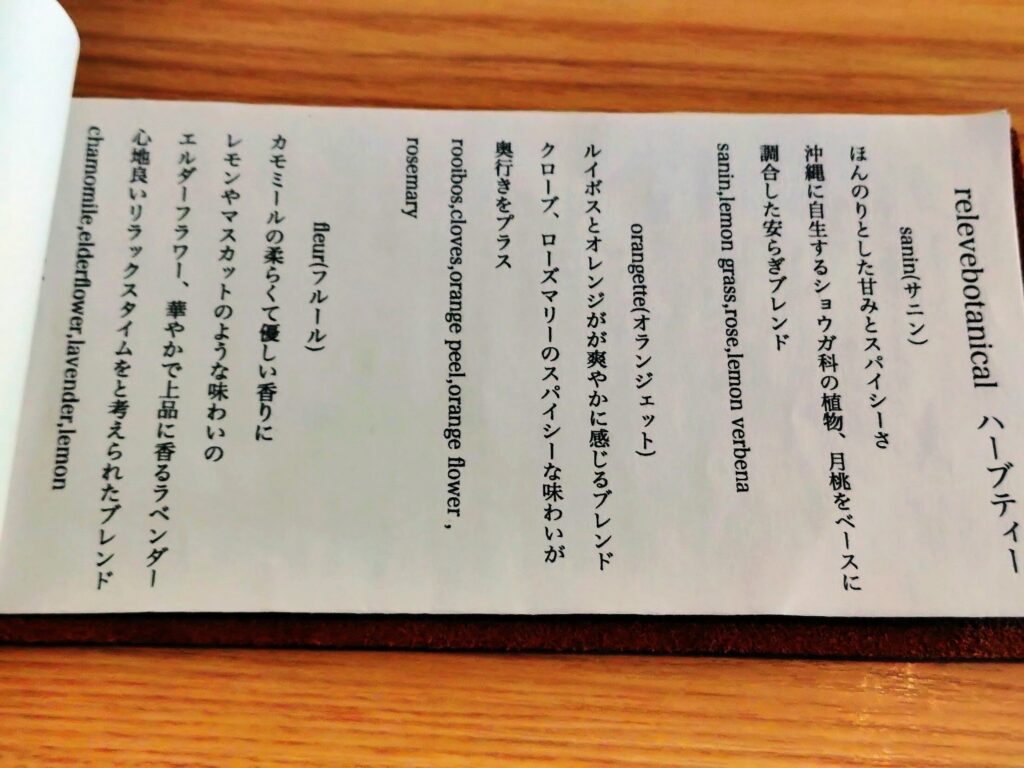 relevebotanical ハーブティー
sanin(サニン)
ほんのりとした甘みとスパイシーさ
沖縄に自生するショウガ科の植物、月桃をベースに
調合した安らぎブレンド
sanin,lemon grass,rose,lemon verbena
orangette(オランジェット)
ルイボスとオレンジがが爽やかに感じるブレンド
クローブ、ローズマリーのスパイシーな味わいが
奥行きをプラス
rooibos,cloves,orange peel,orange flower ,
rosemary
fleur(フルール)
カモミールの柔らくて優しい香りに
レモンやマスカットのような味わいの
エルダーフラワー、華やかで上品に香るラベンダー
心地良いリラックスタイムをと考えられたブレンド
chamomile,elderflower,lavender,lemon